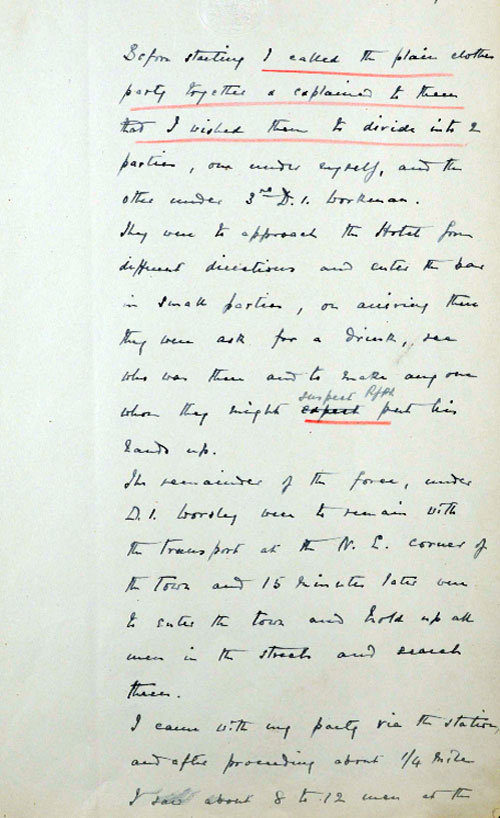 Before starting I called the plain clothes
party together & explained to them
that I wished them to divide into 2
parties, one under myself, and the
other under 3rd D.I. Workman.
They were to approach the Hotel from
different directions and enter the bar
in small parties, on arriving there
they were ask for a drink, see
who was there and to make any one
suspect
whom they might expect put his
hands up.
The remainder of the force, under
D.I. Worsley were to remain with
the transport at the N.E. corner of
the town and 15 minutes later were
to enter the town and hold up all
men in the streets and search
them.
I came with my party via the station,
and after proceeding about 1/4 mile
I saw about 8 to 12 men at the